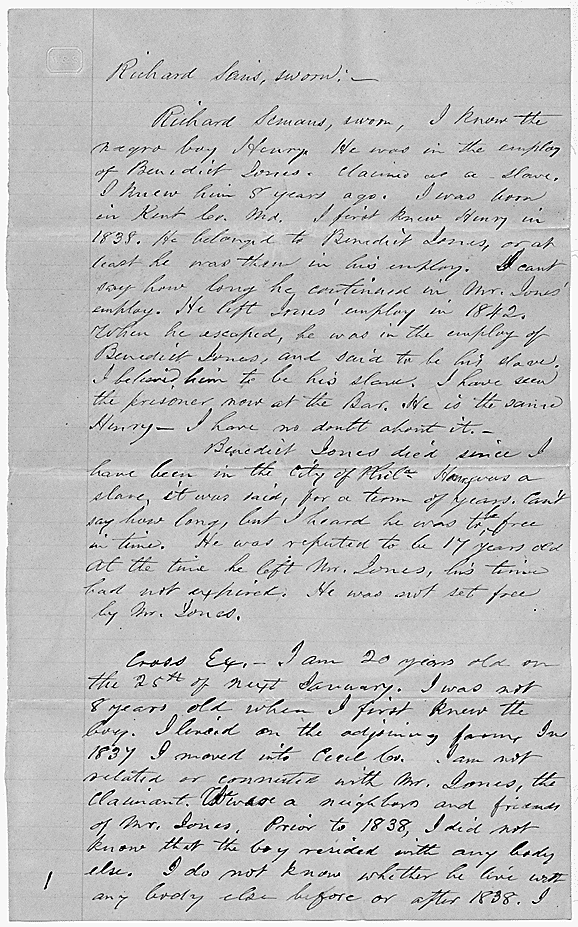 Richard Sims, sworn:—
Richard Semans, sworn, I know the
negro boy Henry. He was in the employ
of Benedict Jones. Claimed as a slave.
I knew him 8 years ago. I was born
in Kent Co. Md. I first knew Henry in
1838. He belonged to Benedict Jones, or at
least he was then in his employ. I cant
say how long he continued in Mr. Jones'
employ. He left Jones' employ in 1842.
When he escaped, he was in the employ of
Benedict Jones, and said to be his slave.
I believed him to be his slave. I have seen
the prisoner now at the Bar. He is the same
Henry— I have no doubt about it.—
Benedict Jones died since I
have been in the City of Phila Henry was a
slave, it was said, for a term of years. Can't
say how long, but I heard he was to be free
in time. He was reputed to be 17 years old
at the time he left Mr. Jones, his time
had not expired. He was not set free
by Mr. Jones.
Cross Ex.— I am 20 years old on
the 25th of next January. I was not
8 years old when I first knew the
boy. I lived on the adjoining farm, In
1837 I moved into Cecil Co. I am not
related or connected with Mr. Jones, the
Claimant. We were neighbors and friends
of Mr. Jones. Prior to 1838, I did not
know that the boy resided with any body
else. I do not know whether he live with
any body else before or after 1838. I
1